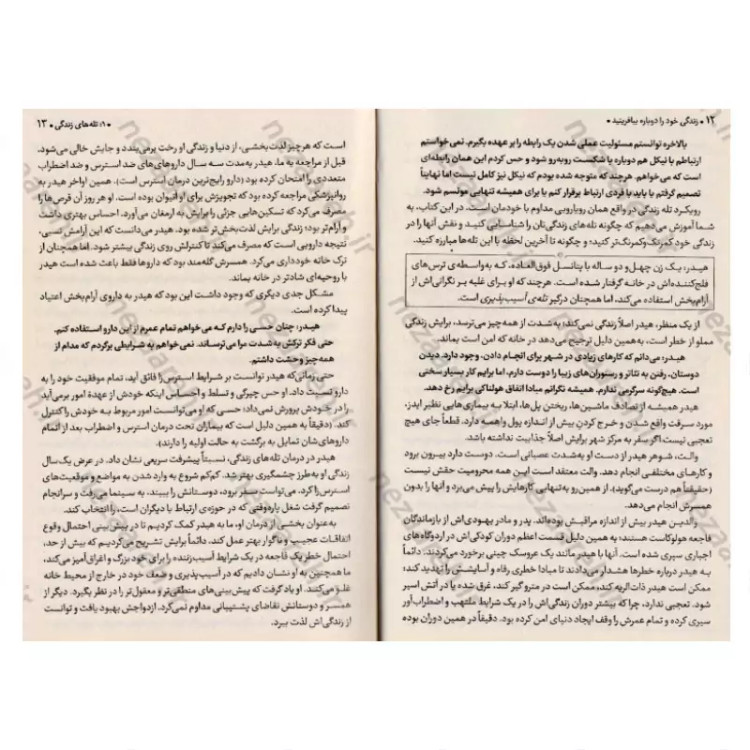 ۱۲ • زندگی خود را دوباره بیافرینید •
بالاخره توانستم مسئولیت عملی شدن یک رابطه را بر عهده بگیرم. نمی‌خواستم
ارتباطم با نیکل هم دوباره با شکست روبه‌رو شود و حس کردم این همان رابطه‌ای
است که می‌خواهم. هرچند که متوجه شده بودم که نیکل نیز کامل نیست اما نهایتاً
تصمیم گرفتم یا باید با فردی ارتباط برقرار کنم یا برای همیشه تنهایی مونسم شود.
رویکرد تله زندگی در واقع همان رویارویی مداوم با خودمان است. در این کتاب، به
شما آموزش می‌دهیم که چگونه تله‌های زندگی‌تان را شناسایی کنید و نقش آنها را در
زندگی خود کمرنگ و کمرنگ‌تر کنید؛ و چگونه تا آخرین لحظه با این تله‌ها مبارزه کنید.
هیدر، یک زن چهل‌و دو ساله با پتانسیل فوق‌العاده، که به‌واسطه‌ی ترس‌های
فلج‌کننده‌اش در خانه گرفتار شده است. هرچند که او برای غلبه بر نگرانی‌اش از
آرام‌بخش استفاده می‌کند، اما همچنان درگیر تله‌ی آسیب‌پذیری است.
از یک منظر، هیدر اصلاً زندگی نمی‌کند؛ به‌شدت از همه‌چیز می‌ترسد، برایش زندگی
مملو از خطر است، به‌همین دلیل ترجیح می‌دهد در خانه که امن است بماند.
هیدر، می‌دانم که کارهای زیادی در شهر برای انجام دادن، وجود دارد. دیدن
دوستان، رفتن به تئاتر و رستوران‌های زیبا را دوست دارم، اما برایم کار بسیار سختی
است. هیچ‌گونه سرگرمی ندارم. همیشه نگرانم مبادا اتفاق هولناکی برایم رخ دهد.
هیدر همیشه از تصادف ماشین‌ها، ریختن پل‌ها، ابتلا به بیماری‌هایی نظیر ایدز،
مورد سرقت واقع شدن و خرج کردن بیش از اندازه پول واهمه دارد. قطعاً جای هیچ
تعجبی نیست اگر سفر به مرکز شهر برایش اصلاً جذابیت نداشته باشد.
والت، شوهر هیدر از دست او به‌شدت عصبانی است. دوست دارد بیرون برود
و کارهای مختلفی انجام دهد. والت معتقد است این همه محرومیت حقش نیست
(حقیقتاً هم درست می‌گوید). از همین‌رو به‌تنهایی کارهایش را پیش می‌برد و آنها را بدون
همسرش انجام می‌دهد.
والدین هیدر بیش از اندازه مراقبش بوده‌اند. پدر و مادر یهودی‌اش از بازماندگان
فاجعه هولوکاست هستند؛ به همین دلیل قسمت اعظم دوران کودکی‌اش در اردوگاه‌های
اجباری سپری شده است. آنها با هیدر مانند یک عروسک چینی برخورد می‌کردند. دائماً
به هیدر درباره خطرها هشدار می‌دادند تا مبادا خطری رفاه و آسایشش را تهدید کند؛
ممکن است هیدر ذات‌الریه کند، ممکن است در مترو گیر کند، غرق شده یا در آتش اسیر
شود. تعجبی ندارد، چرا که بیشتر دوران زندگی‌اش را در یک شرایط ملتهب و اضطراب‌آور
سپری کرده و تمام عمرش را وقف ایجاد دنیای امن کرده بود. دقیقاً در همین دوران بوده
• ۱: تله‌های زندگی • ۱۳
است که هرچیز لذت‌بخشی، از دنیا و زندگی او رخت برمی‌بندد و جایش خالی می‌شود.
قبل از مراجعه به ما، هیدر به‌مدت سه سال داروهای‌های ضد استرس و ضد اضطراب
متعددی را امتحان کرده بود (دارو رایج‌ترین درمان استرس است). همین اواخر هیدر به
روانپزشکی مراجعه کرده بود که تجویزش برای او آتیوان بوده است. او هر روز آن قرص‌ها را
مصرف می‌کرد که تسکین‌هایی جزئی را برایش به ارمغان می‌آورد. احساس بهتری داشت
و آرام‌تر بود؛ زندگی برایش لذت‌بخش‌تر شده بود. هیدر می‌دانست که این آرامش نسبی،
نتیجه دارویی است که مصرف می‌کند تا کنترلش روی زندگی بیشتر شود. اما همچنان از
ترک خانه خودداری می‌کرد. همسرش گله‌مند بود که داروها فقط باعث شده است هیدر
با روحیه‌ای شادتر در خانه بماند.
مشکل جدی دیگری که وجود داشت این بود که هیدر به داروی آرام‌بخش اعتیاد
پیدا کرده است.
هیدر، چنان حسی را دارم که می‌خواهم تمام عمرم از این دارو استفاده کنم.
حتی فکر ترکش به‌شدت مرا می‌ترساند. نمی‌خواهم به شرایطی برگردم که مدام از
همه‌چیز وحشت داشتم.
حتی زمانی‌که هیدر توانست بر شرایط استرس‌زا فائق آید، تمام موفقیت خود را به
دارو نسبت داد. او حس چیرگی و تسلط و احساس اینکه خودش از عهده امور برمی‌آید
را در خودش پرورش نمی‌داد؛ حسی که او می‌توانست امور مربوط به خودش را کنترل
کند. (دقیقاً به همین دلیل است که بیماران تحت درمان استرس و اضطراب بعد از اتمام
داروهای‌شان تمایل به برگشت به حالت اولیه را دارند).
هیدر در درمان تله‌های زندگی، نسبتاً پیشرفت سریعی نشان داد. در عرض یک سال
زندگی او به‌طرز چشمگیری بهتر شد. کم‌کم شروع به وارد شدن به مواضع و موقعیت‌های
استرس‌زا کرد. می‌توانست سفر برود، دوستانش را ببیند، به سینما می‌رفت و سرانجام
تصمیم گرفت شغل پاره‌وقتی که در حوزه‌ی ارتباط با دیگران است، را انتخاب کند.
به‌عنوان بخشی از درمان او، ما به هیدر کمک کردیم تا در پیش‌بینی احتمال وقوع
اتفاقات عجیب و ناگوار بهتر عمل کند. دائماً برایش تشریح می‌کردیم که بیش از حد،
احتمال خطر یک فاجعه در یک شرایط آسیب‌زننده را برای خود بزرگ و اغراق‌آمیز می‌کند،
ما همچنین به او نشان دادیم که در آسیب‌پذیری و ضعف خود در خارج از محیط خانه
غلو می‌کند. او یاد گرفت که پیش‌بینی‌های منطقی‌تر و معقول‌تر را در نظر بگیرد. دیگر از
همسر و دوستانش تقاضای پشتیبانی مداوم نمی‌کرد. ازدواجش بهبود یافت و توانست
از زندگی‌اش لذت ببرد.